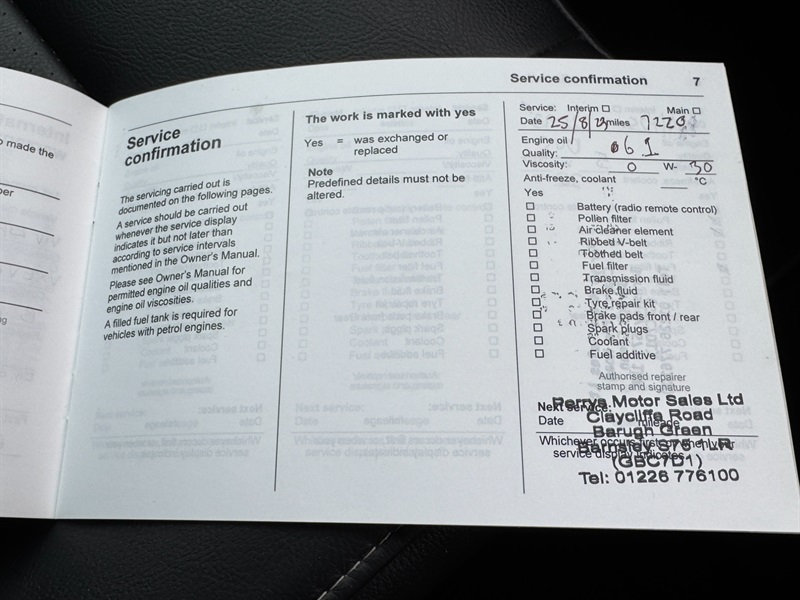 o made the
per
ng
Service
confirmation
The servicing carried out is
documented on the following pages.
A service should be carried out
whenever the service display
indicates it but not later than
according to service intervals
mentioned in the Owner's Manual.
Please see Owner's Manual for
permitted engine oil qualities and
engine oil viscosities.
A filled fuel tank is required for
vehicles with petrol engines.
The work is marked with yes
Yes = was exchanged or
replaced
Note
Predefined details must not be
altered.
Service confirmation 7
Service: Interim Main
Date 25/8/23 miles
Engine oil
Quality: 61
Viscosity: 0 W- 30
Anti-freeze, coolant °C
Yes
Battery (radio remote control)
Pollen filter
Air cleaner element
Ribbed V-belt
Toothed belt
Fuel filter
Transmission fluid
Brake fluid
Tyre repair kit
Brake pads front / rear
Spark plugs
Coolant
Fuel additive
Authorised repairer
stamp and signature
Perrys Motor Sales Ltd
Next service:
Claycliffe Road
Date mileage
Barugh Green
Whichever occurs first or when your
Barnsley S75 1LR
service display indicates
(GBC7D1)
Tel: 01226 776100